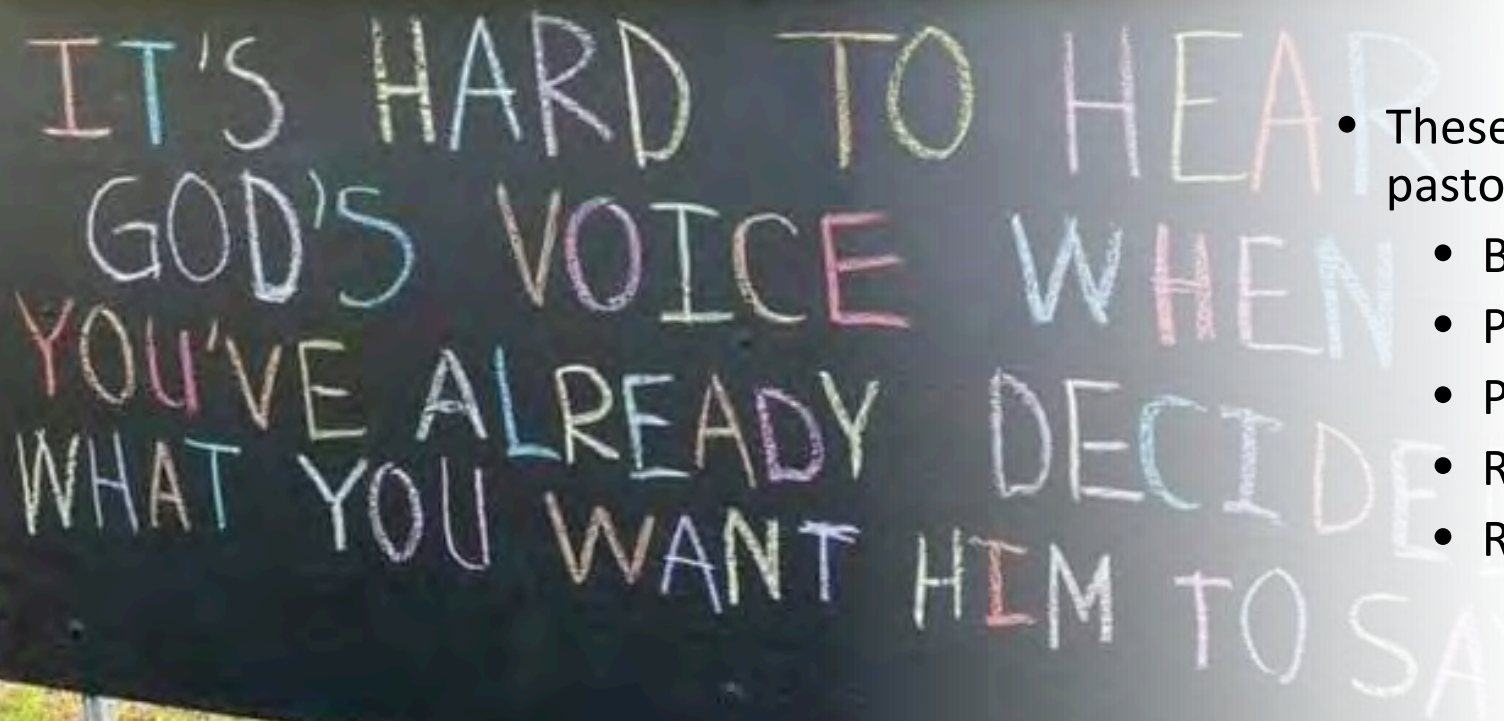 IT'S HARD TO HEAR
GOD'S VOICE WHEN
YOU'VE ALREADY DECIDE
WHAT YOU WANT HIM TO SAY
• These
pasto
• B
• P
• P
• R
• R